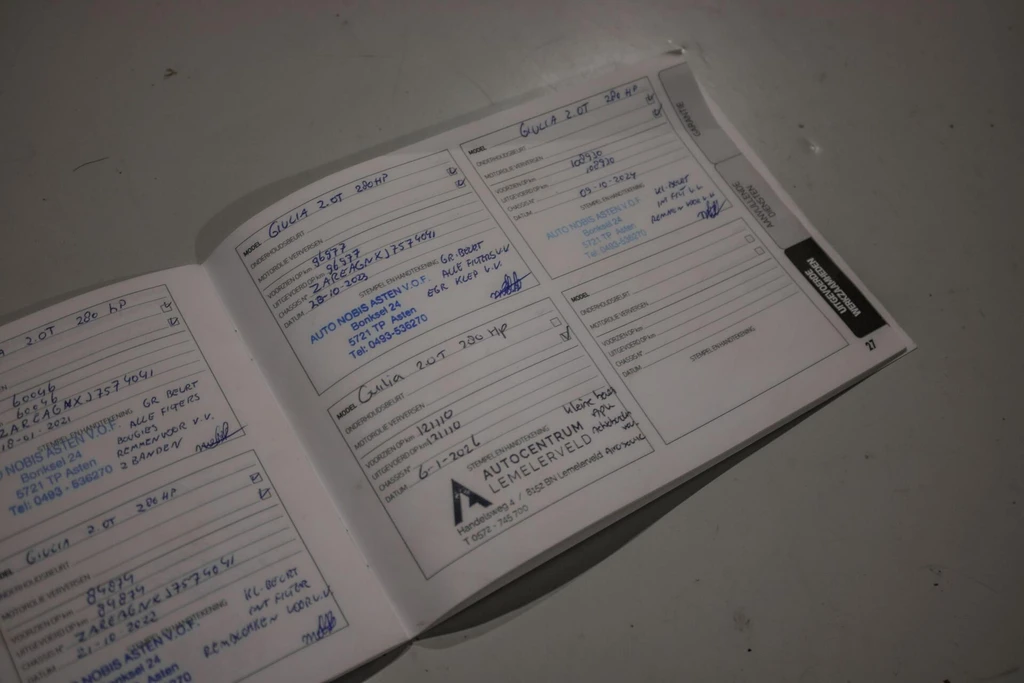 2.0T 280 HP
60046
60046
ZAREAGNXJ7574041
18-01-2021
STEMPEL EN HANDTEKENING
NOBIS ASTEN V.O.F.
Bonksel 24
5721 TP Asten
Tel: 0493 - 536270
GR. BEURT
ALLE FILTERS
BOUGIES
REMMEN VOOR V.V.
2 BANDEN
GIULIA 2.0T 280 HP
ONDERHOUDSBEURT
MOTOROLIE VERVERSEN
VOORZIEN OP km 84874
UITGEVOERD OP km 84874
CHASSIS N° ZAREAGNXJ7574041
DATUM 21-10-2022
STEMPEL EN HANDTEKENING
NOBIS ASTEN V.O.F.
Bonksel 24
5721 TP Asten
KL. BEURT
INT FILTER
REMBLOKKEN VOOR V.V.
MODEL GIULIA 2.0T 280 HP
ONDERHOUDSBEURT
MOTOROLIE VERVERSEN
VOORZIEN OP km 96977
UITGEVOERD OP km 96977
CHASSIS N° ZAREAGNXJ7574041
DATUM 28-10-2023
STEMPEL EN HANDTEKENING
AUTO NOBIS ASTEN V.O.F.
Bonksel 24
5721 TP Asten
Tel: 0493-536270
GR. BEURT
ALLE FILTERS V.V
EGR KLEP V.V.
MODEL Giulia 2.0T 280 HP
ONDERHOUDSBEURT
MOTOROLIE VERVERSEN
VOORZIEN OP km 121110
UITGEVOERD OP km 121110
CHASSIS N°
DATUM 6-1-2026
STEMPEL EN HANDTEKENING
AUTOCENTRUM
LEMELERVELD
Handelsweg 4 / 8152 BN Lemelerveld
T 0572 - 745 700
kleine beurt
APK
MODEL GIULIA 2.0T 280 HP
ONDERHOUDSBEURT
MOTOROLIE VERVERSEN
VOORZIEN OP km 108930
UITGEVOERD OP km 108930
CHASSIS N°
DATUM 09-10-2024
STEMPEL EN HANDTEKENING
AUTO NOBIS ASTEN V.O.F.
Bonksel 24
5721 TP Asten
Tel: 0493-536270
KL. BEURT
INT FILT V.V.
MODEL
ONDERHOUDSBEURT
MOTOROLIE VERVERSEN
VOORZIEN OP km
UITGEVOERD OP km
CHASSIS N°
DATUM
STEMPEL EN HANDTEKENING
GARANTIE
AANVULLENDE
DIENSTEN
UITGEVOERDE
WERKZAAMHEDEN
27